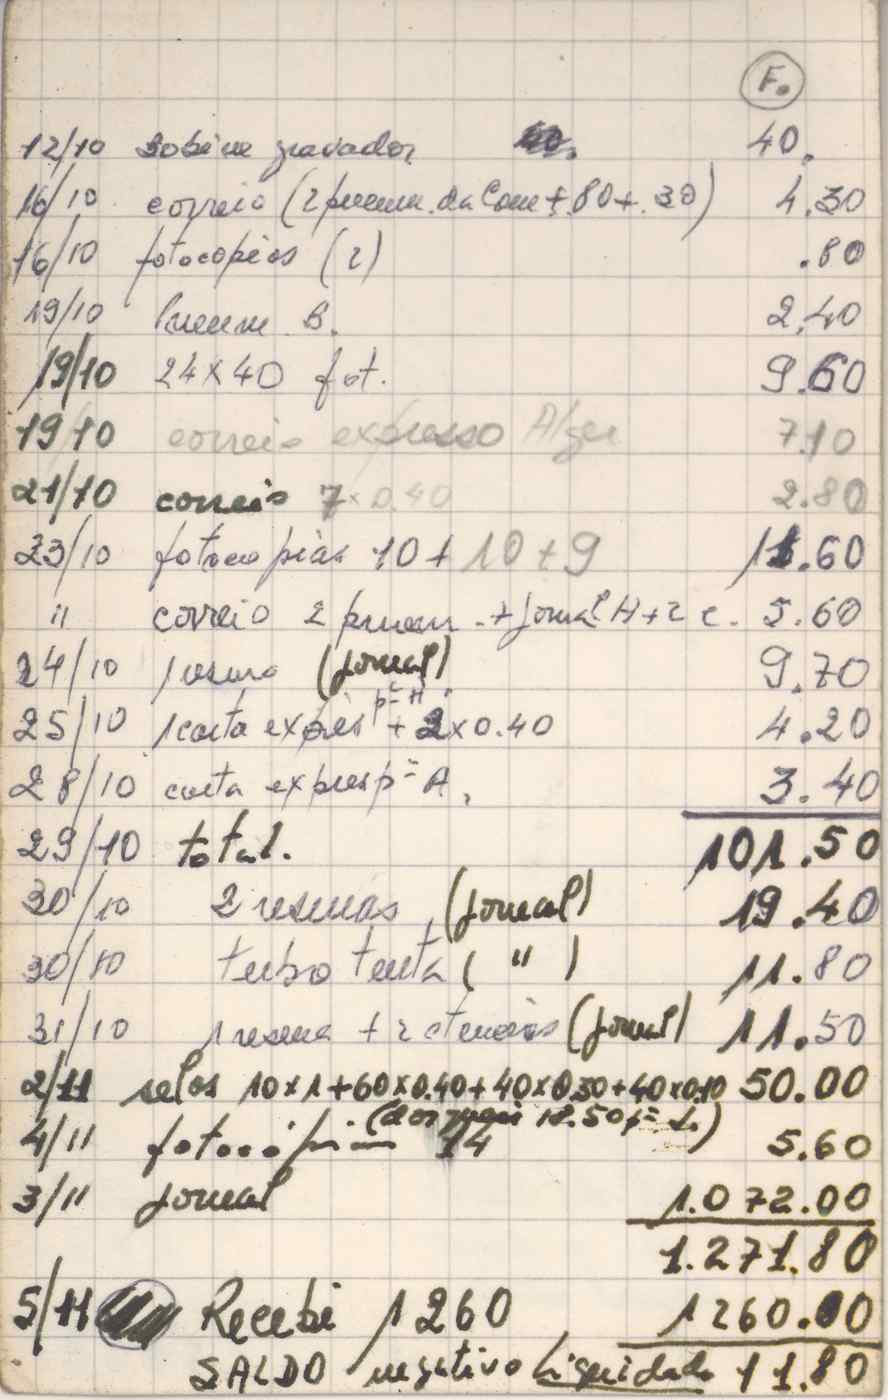 F.
12/10 Bobine gravador 40.
16/10 correio (2 da Com + .80 + .30) 4.30
16/10 fotocopias (2) .80
19/10 B. 2.40
19/10 24x40 fot. 9.60
19/10 correio expresso Alger 7.10
21/10 correio 7x0.40 2.80
23/10 fotocopias 10 + 10 + 9 11.60
" correio 2 + jornal H + 2 c. 5.60
24/10 1 resma (jornal) 9.70
25/10 1 carta exprès pª H + 2x0.40 4.20
28/10 carta expres pª A. 3.40
29/10 total. 101.50
30/10 2 resmas (jornal) 19.40
30/10 tubo tinta ( " ) 11.80
31/10 1 resma + 2 (jornal) 11.50
2/11 selos 10x1+60x0.40+40x0.30+40x0.10 50.00
(dos 12.50 pª L.)
4/11 fotocópias 14 5.60
3/11 jornal 1.072.00
1.271.80
5/11 Recebi 1260 1260.00
SALDO negativo Liquidado 11.80